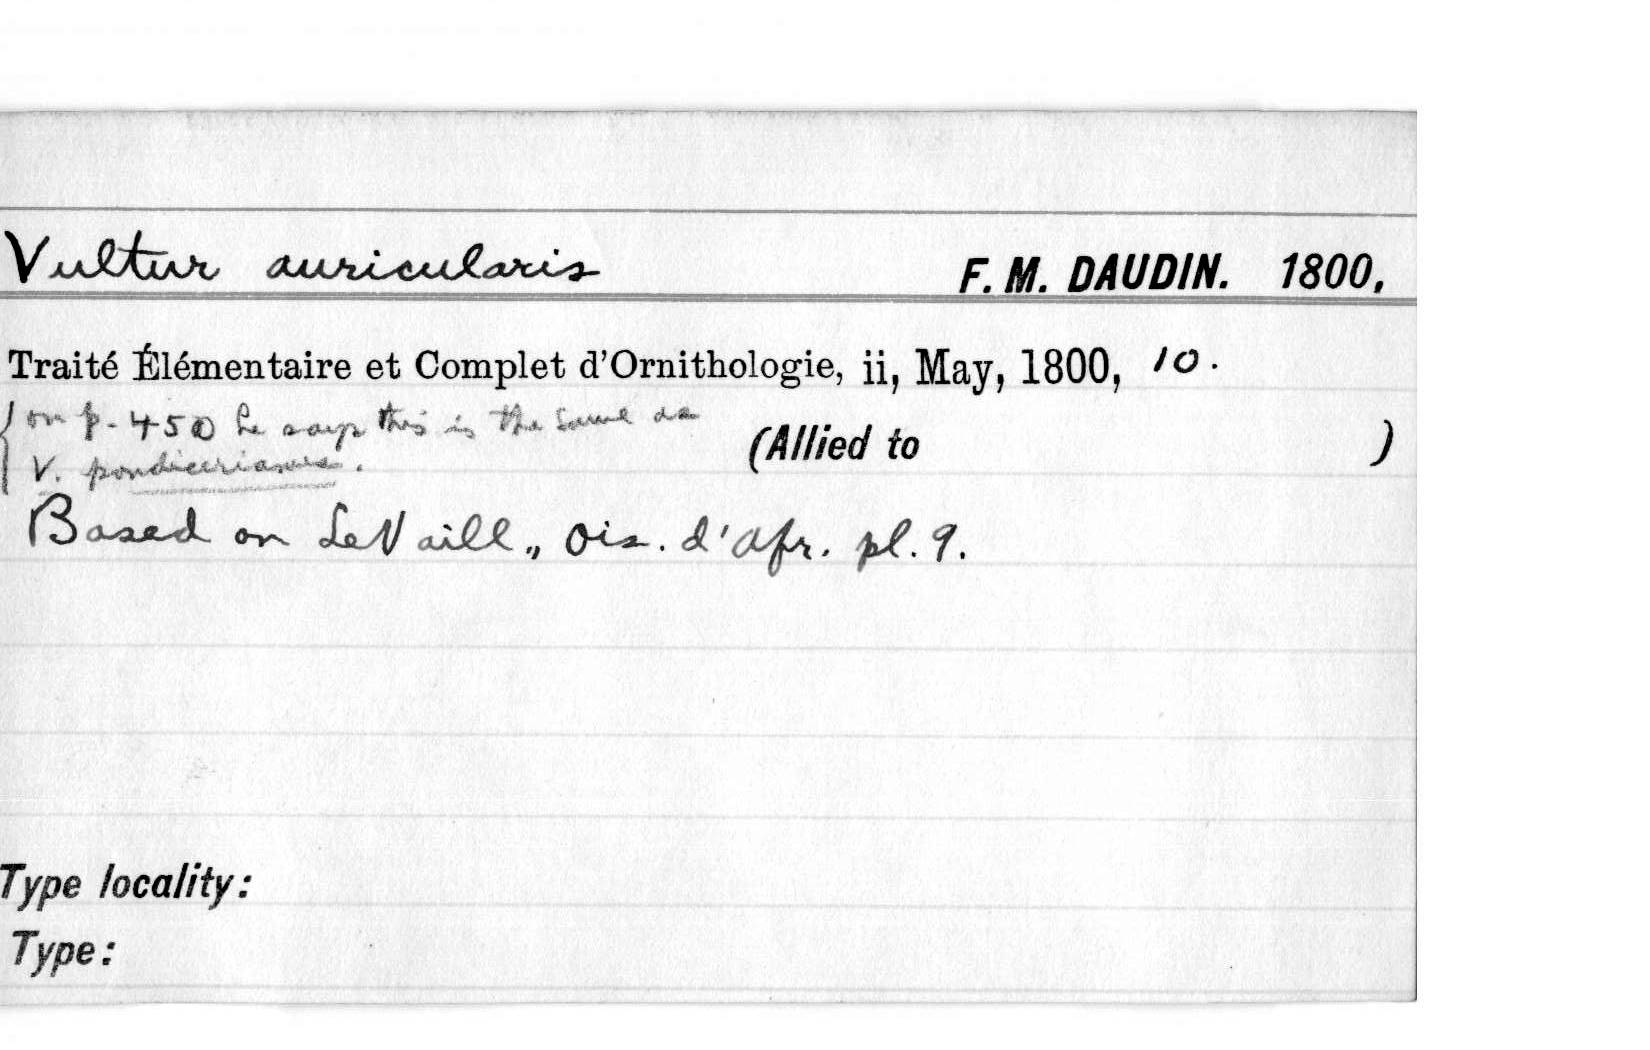 Vultur auricularis F. M. DAUDIN. 1800,
Traité Élémentaire et Complet d'Ornithologie, ii, May, 1800, 10.
on p. 450 he says this is the same as
V. pondicerianus.
(Allied to )
Based on LeVaill., Ois. d'Afr. pl. 9.
Type locality:
Type: